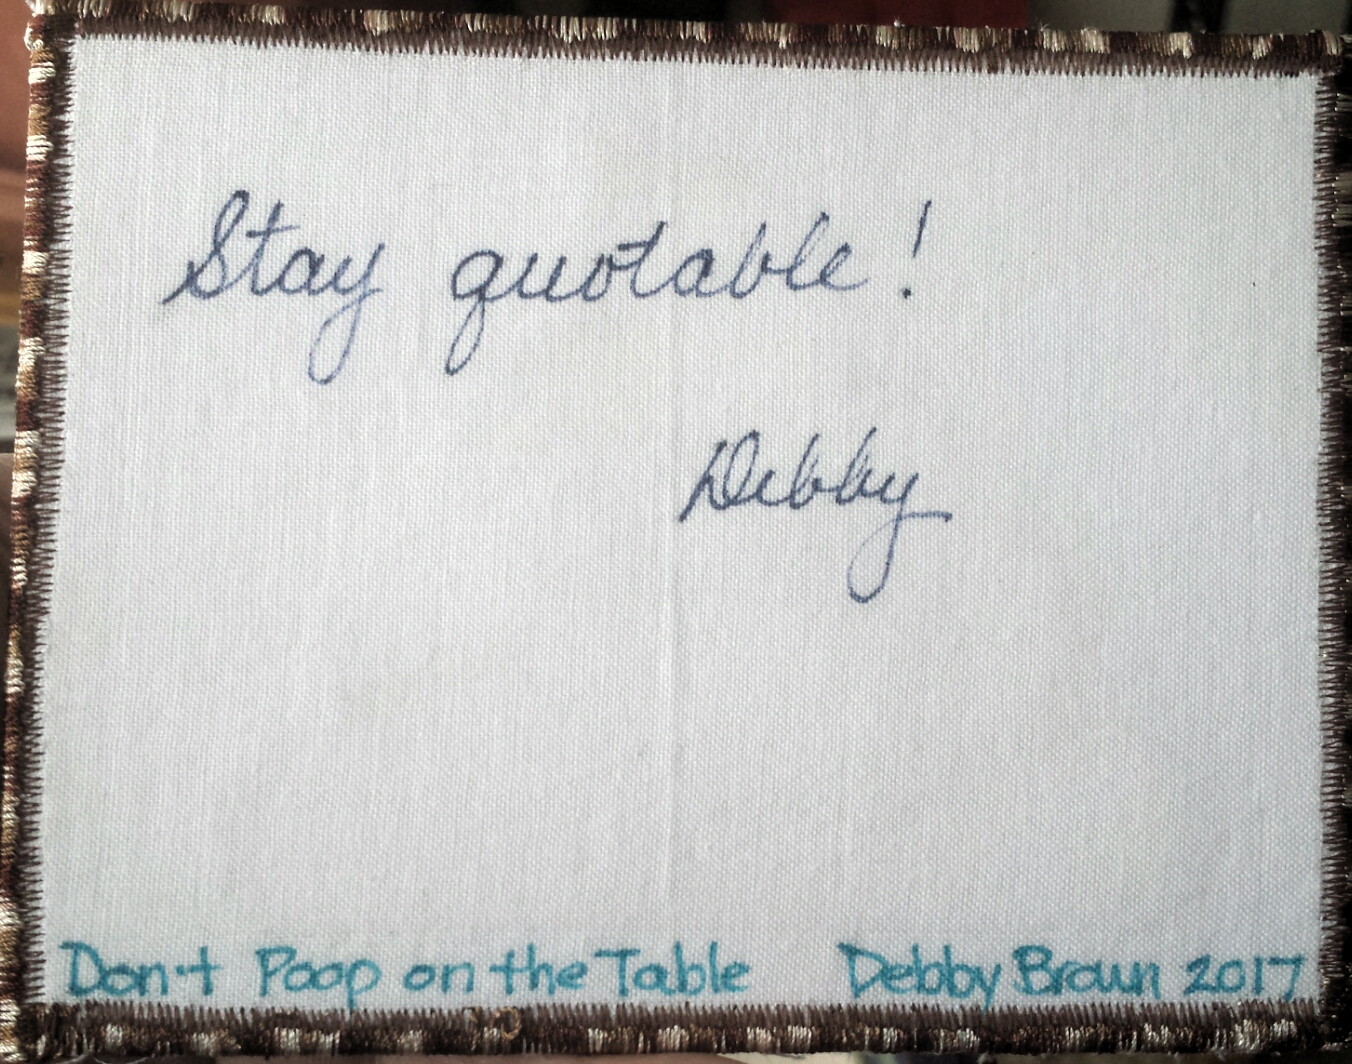 Stay quotable!
Debby
Don't Poop on the Table Debby Brown 2017